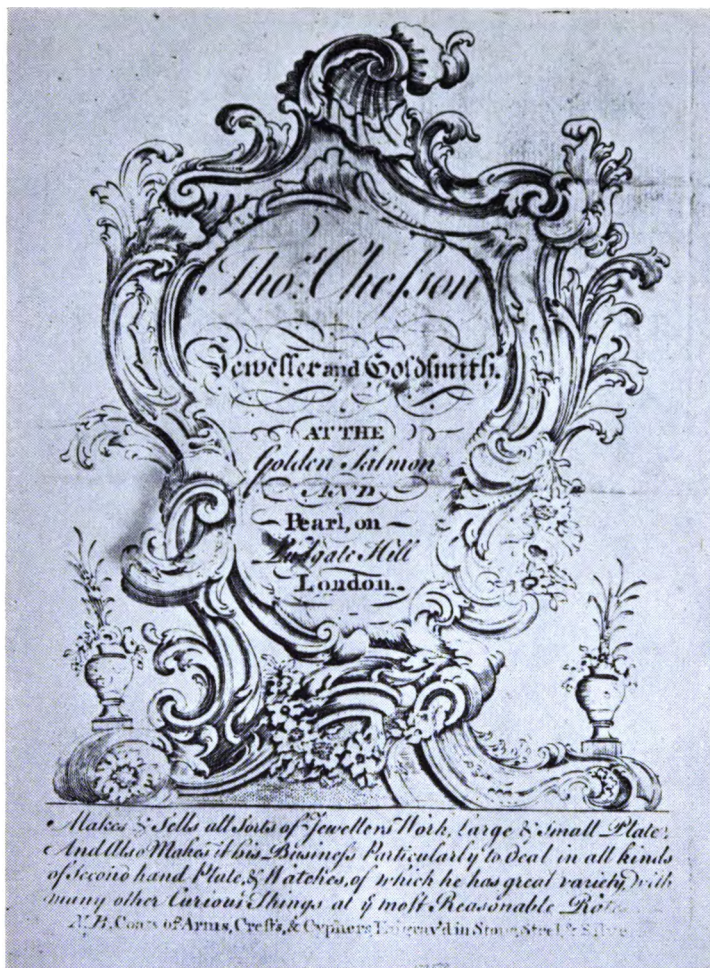 Tho.s Cheſson
Jeweller and Goldsmith.
AT THE
Golden Salmon
AND
Pearl, on
Ludgate Hill
London.
Makes & Sells all Sorts of Jewellers Work, Large & Small Plate:
And Also Makes it his Buſineſs Particularly to deal in all kinds
of Second hand Plate, & Watches, of which he has great variety, with
many other Curious Things at ye moſt Reaſonable Rates
N.B. Coats of Arms, Creſts, & Cyphers Engrav'd in Stone, Steel, & Silver